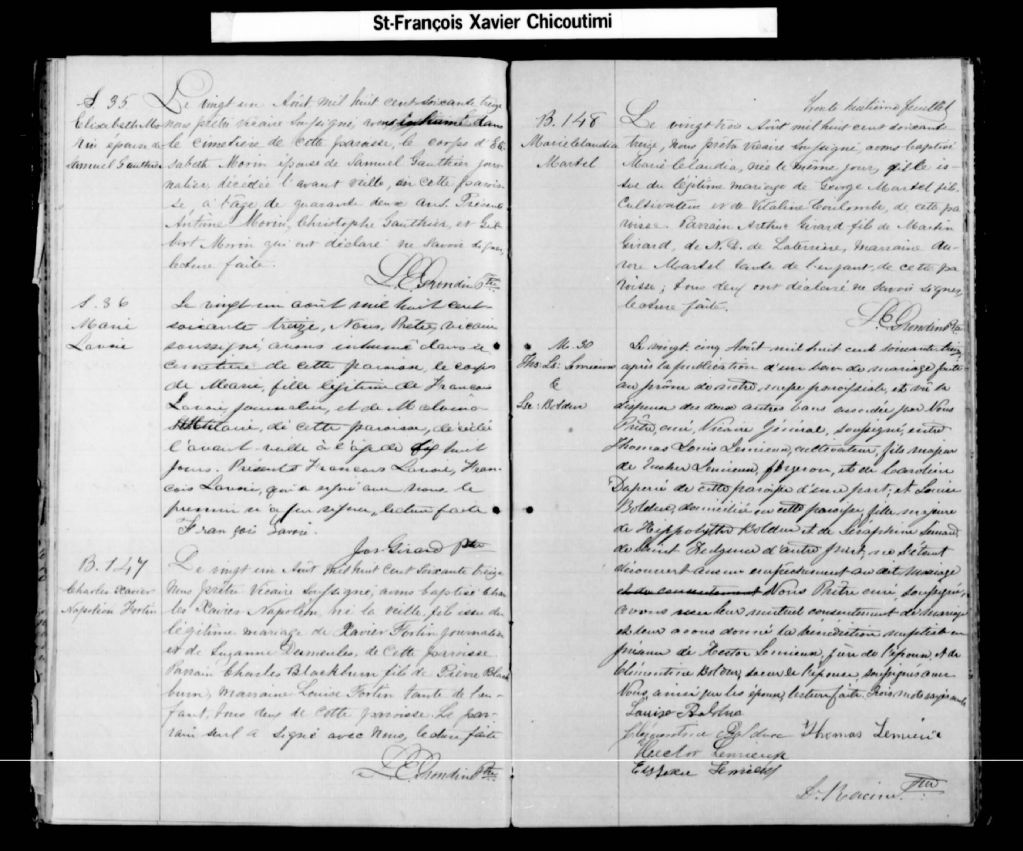 St-François Xavier Chicoutimi
S. 35
Elisabeth Mo-
rin épouse de
Samuel Gauthier
Le vingt un Août mil huit cent soixante treize
nous prêtre vicaire soussigné, avons inhumé dans
le cimetière de cette paroisse, le corps d'Eli-
sabeth Morin épouse de Samuel Gauthier jour-
nalier décédée l'avant veille, en cette parois-
se à l'âge de quarante deux ans. Présents
Antoine Morin, Christophe Gauthier, et Gil-
bert Morin qui ont déclaré ne savoir signer,
lecture faite.
Grondin Ptre
S. 36
Marie
Lavoie
Le vingt un août mil huit cent
soixante treize, Nous, Prêtre, vicaire
soussigné, avons inhumé dans le
cimetière de cette paroisse, le corps
de Marie, fille légitime de François
Lavoie, journalier, et de Malvina
de cette paroisse, décédée
l'avant veille à l'âge de huit
jours. Présents François Lavoie, Fran-
çois Lavoie, qui a signé avec nous. le
premier n'a pu signer, lecture faite
François Lavoie
Jos. Girard Ptre
B. 147
Charles Xavier
Napoléon Fortin
Le vingt un Août mil huit cent soixante treize
Nous prêtre Vicaire soussigné, avons baptisé Char-
les Xavier Napoléon, né la veille, fils issu du
légitime mariage de Xavier Fortin journalier
et de Suzanne Dumeules, de cette paroisse
Parrain Charles Blackburn fils de Pierre Black
burn, marraine Louise Fortin tante de l'en-
fant, tous deux de cette paroisse. Le par-
rain seul a signé avec nous, lecture faite
Grondin Ptre
Trente huitième feuillet
B. 148
Marie Claudia
Martel
Le vingt trois Août mil huit cent soixante
treize, Nous prêtre Vicaire soussigné, avons baptisé
Marie Claudia, née le même jour, fille is-
sue du légitime mariage de George Martel fils
Cultivateur et de Vitaline Coulombe, de cette pa
roisse. Parrain Arthur Girard fils de Martin
Girard, de N. D. de Laterrière, marraine Au-
rore Martel tante de l'enfant, de cette pa
roisse ; tous deux ont déclaré ne savoir signer,
lecture faite.
Grondin Ptre
M. 30
Ths Ls Lemieux
&
Lse Bolduc
Le vingt cinq Août mil huit cent soixante treize,
après la publication d'un banc de mariage faite
au prône de notre messe paroissiale, et vû la
dispense des deux autres bans accordée par Nous
Prêtre, curé, Vicaire Général, soussigné, entre
Thomas Louis Lemieux, cultivateur, fils majeur
de Lemieux, forgeron, et de Caroline
Duperé de cette paroisse d'une part; et Louise
Bolduc, domiciliée en cette paroisse, fille majeure
de Hippolythe Bolduc et de Séraphine Simard,
de Saint Fulgence d'autre part, ne s'étant
découvert aucun empêchement au dit mariage
Nous Prêtre curé, soussigné,
avons reçu leur mutuel consentement de mariage
et leur avons donné la bénédiction nuptiale en
présence de Hector Lemieux, frère de l'époux, et de
Clémentine Bolduc, soeur de l'épouse, soussignés avec
Nous, ainsi que les époux, lecture faite. Trois mots rayés nuls
Louise Bolduc
Bolduc Thomas Lemieux
Hector Lemieux
D. Racine Ptre